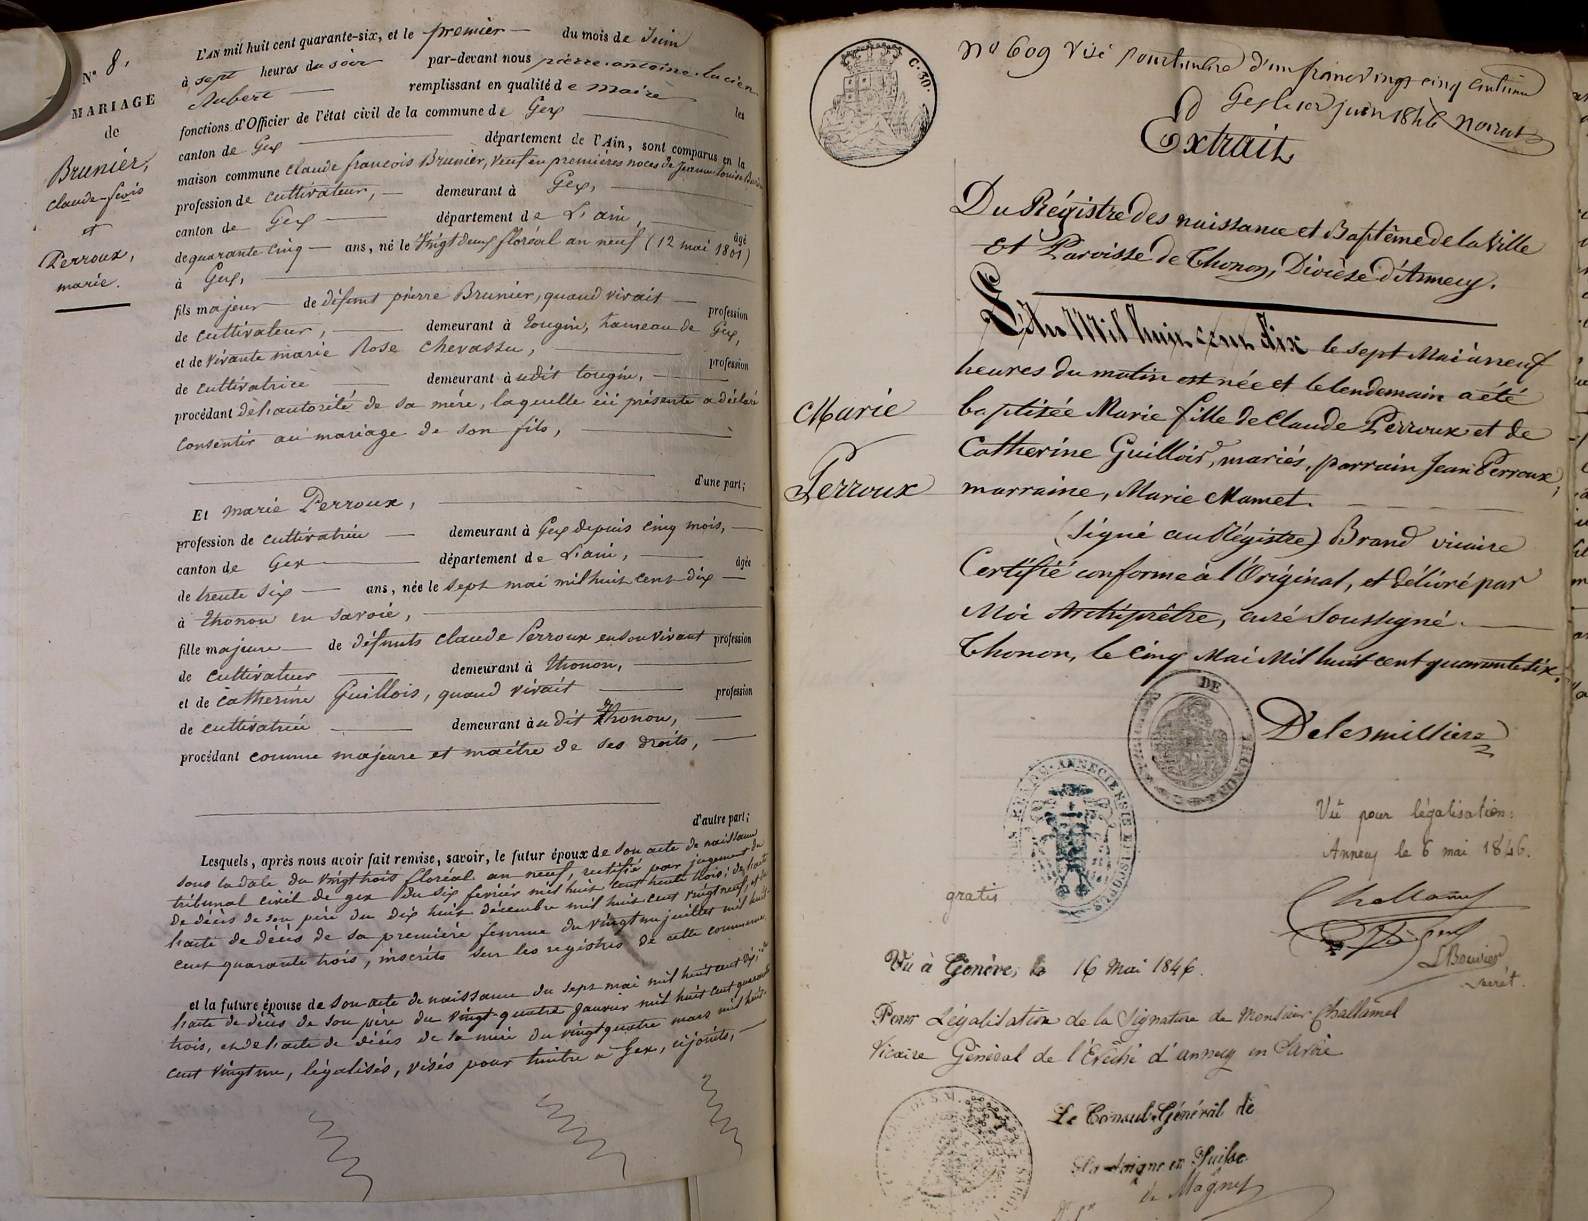 N° 8.
MARIAGE
de
Brunier,
Claude-fcois
et
Perroux,
marie.
L'AN mil huit cent quarante-six, et le premier du mois de Juin
à sept heures du soir par-devant nous pierre-antoine-lucien
Aubert remplissant en qualité de maire les
fonctions d'Officier de l'état civil de la commune de Gex
canton de Gex département de l'Ain, sont comparus en la
maison commune Claude françois Brunier, veuf en premières noces de Jeanne Louise
profession de cultivateur, demeurant à Gex,
canton de Gex département de L'ain, âgé
de quarante cinq ans, né le vingt deux floréal an neuf (12 mai 1801)
à Gex,
fils majeur de défunt pierre Brunier, quand vivait profession
de cultivateur, demeurant à tougin, hameau de Gex,
et de vivante marie Rose Chevassu, profession
de cultivatrice demeurant à udit tougin,
procédant de l'autorité de sa mère, laquelle ici présente a déclaré
consentir au mariage de son fils,
d'une part;
Et marie Perroux,
profession de cultivatrice demeurant à Gex depuis cinq mois,
canton de Gex département de L'ain, âgée
de trente six ans, née le sept mai mil huit cent dix
à thonon en savoie,
fille majeure de défunts Claude Perroux en son vivant profession
de cultivateur demeurant à thonon,
et de catherine Guillois, quand vivait profession
de cultivatrice demeurant à udit thonon,
procédant comme majeure et maître de ses droits,
d'autre part;
Lesquels, après nous avoir fait remise, savoir, le futur époux de son acte de naissance
sous la date du vingt trois floréal an neuf, rectifié par jugement du
tribunal civil de gex du six février mil huit cent trente trois; de l'acte
de décès de son père du dix huit décembre mil huit cent vingt neuf, et de
l'acte de décès de sa première femme du vingt un juillet mil huit
cent quarante trois, inscrits sur les registres de cette commune
et la future épouse de son acte de naissance du sept mai mil huit cent dix;
l'acte de décès de son père du vingt quatre janvier mil huit cent quarante
trois, et de l'acte de décès de sa mère du vingt quatre mars mil huit
cent vingt un, légalisés, visés pour timbre à Gex, cijoints,
C. 30.
N° 609 Visé pour timbre d'un franc vingt cinq centimes
Gex le 1er juin 1846
Extrait
Du Régistre des naissance et Baptême de la Ville
et Paroisse de Thonon, Diocèse d'Annecy.
L'An Mil huit cent dix le sept Mai à neuf
heures du matin est née et le lendemain a été
baptisée Marie fille de Claude Perroux et de
Catherine Guillois, mariés, parrain Jean Perroux,
marraine, Marie Mamet.
Marie
Perroux
(Signé au Régistre) Brand vicaire
Certifié conforme à l'Original, et délivré par
Moi Archiprêtre, curé Soussigné.
Thonon, le cinq Mai Mil huit cent quarante six.
DE
THONON
Delesmilliere
ANNECIENSIS EPISCOPUS
Vu pour légalisation:
Annecy le 6 mai 1846.
Challamel
gratis
Vu à Genève, le 16 Mai 1846.
Pour Légalisation de la Signature de Monsieur Challamel
Vicaire Général de l'Evêché d'annecy en Savoie
Le Consul Général de
Sardaigne en Suisse
de Magny